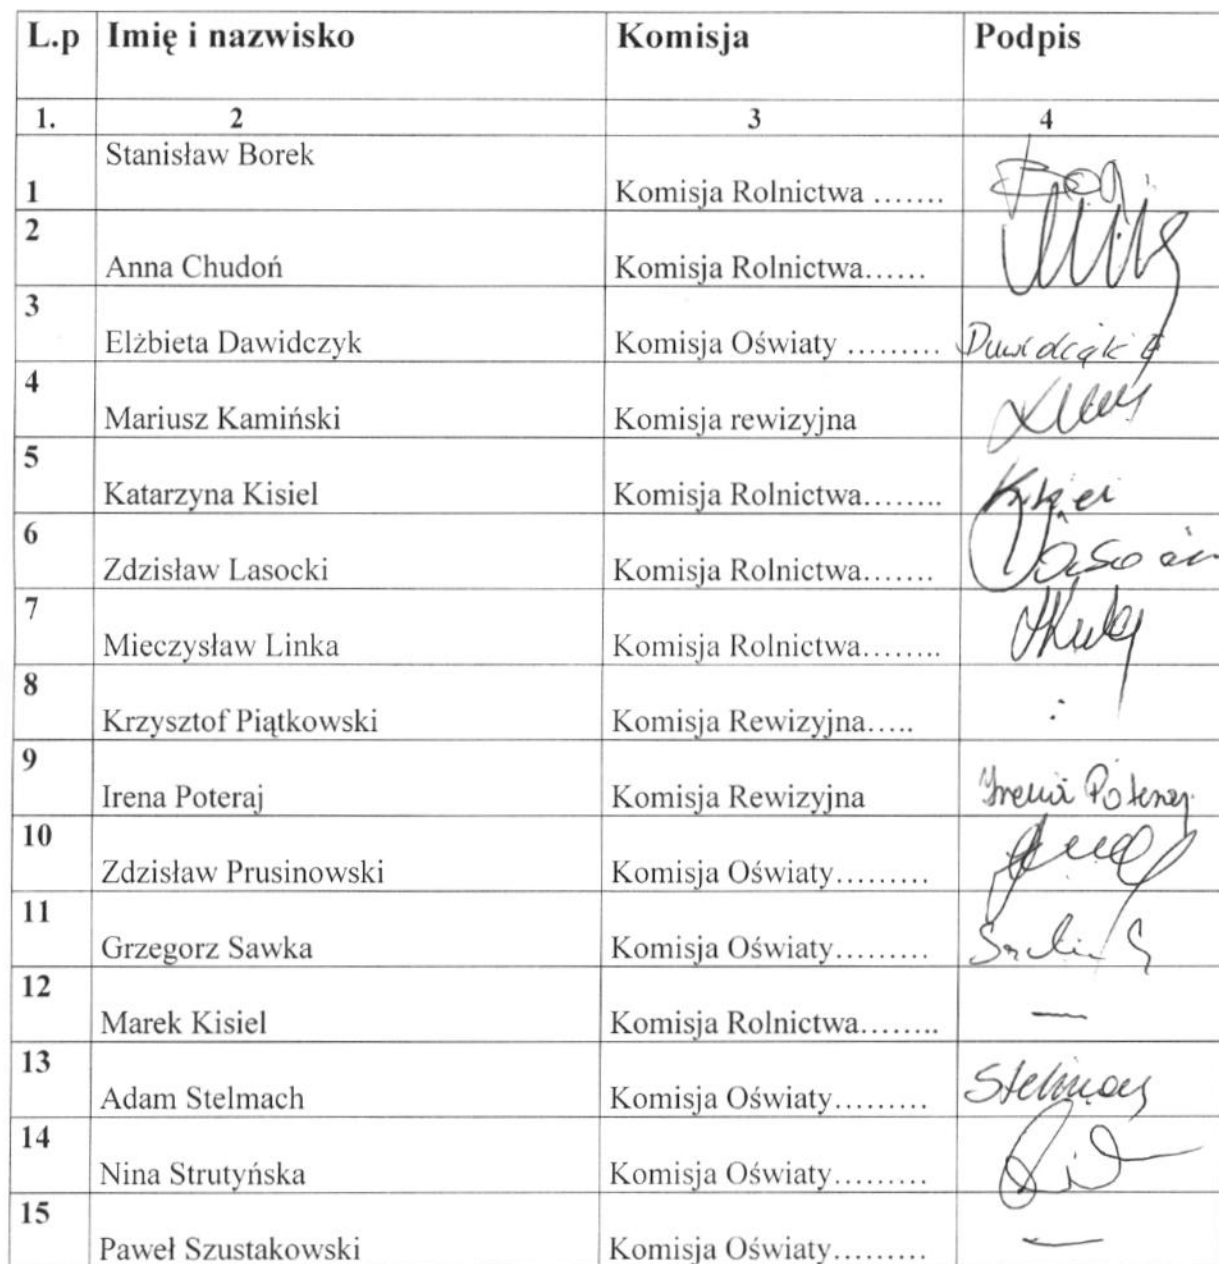 L.p Imię i nazwisko Komisja Podpis
1. 2 3 4
1 Stanisław Borek Komisja Rolnictwa …….
2 Anna Chudoń Komisja Rolnictwa……
3 Elżbieta Dawidczyk Komisja Oświaty ………
4 Mariusz Kamiński Komisja rewizyjna
5 Katarzyna Kisiel Komisja Rolnictwa……..
6 Zdzisław Lasocki Komisja Rolnictwa…….
7 Mieczysław Linka Komisja Rolnictwa……..
8 Krzysztof Piątkowski Komisja Rewizyjna…..
9 Irena Poteraj Komisja Rewizyjna Irena Poteraj
10 Zdzisław Prusinowski Komisja Oświaty………
11 Grzegorz Sawka Komisja Oświaty………
12 Marek Kisiel Komisja Rolnictwa…….. —
13 Adam Stelmach Komisja Oświaty………
14 Nina Strutyńska Komisja Oświaty………
15 Paweł Szustakowski Komisja Oświaty……… —